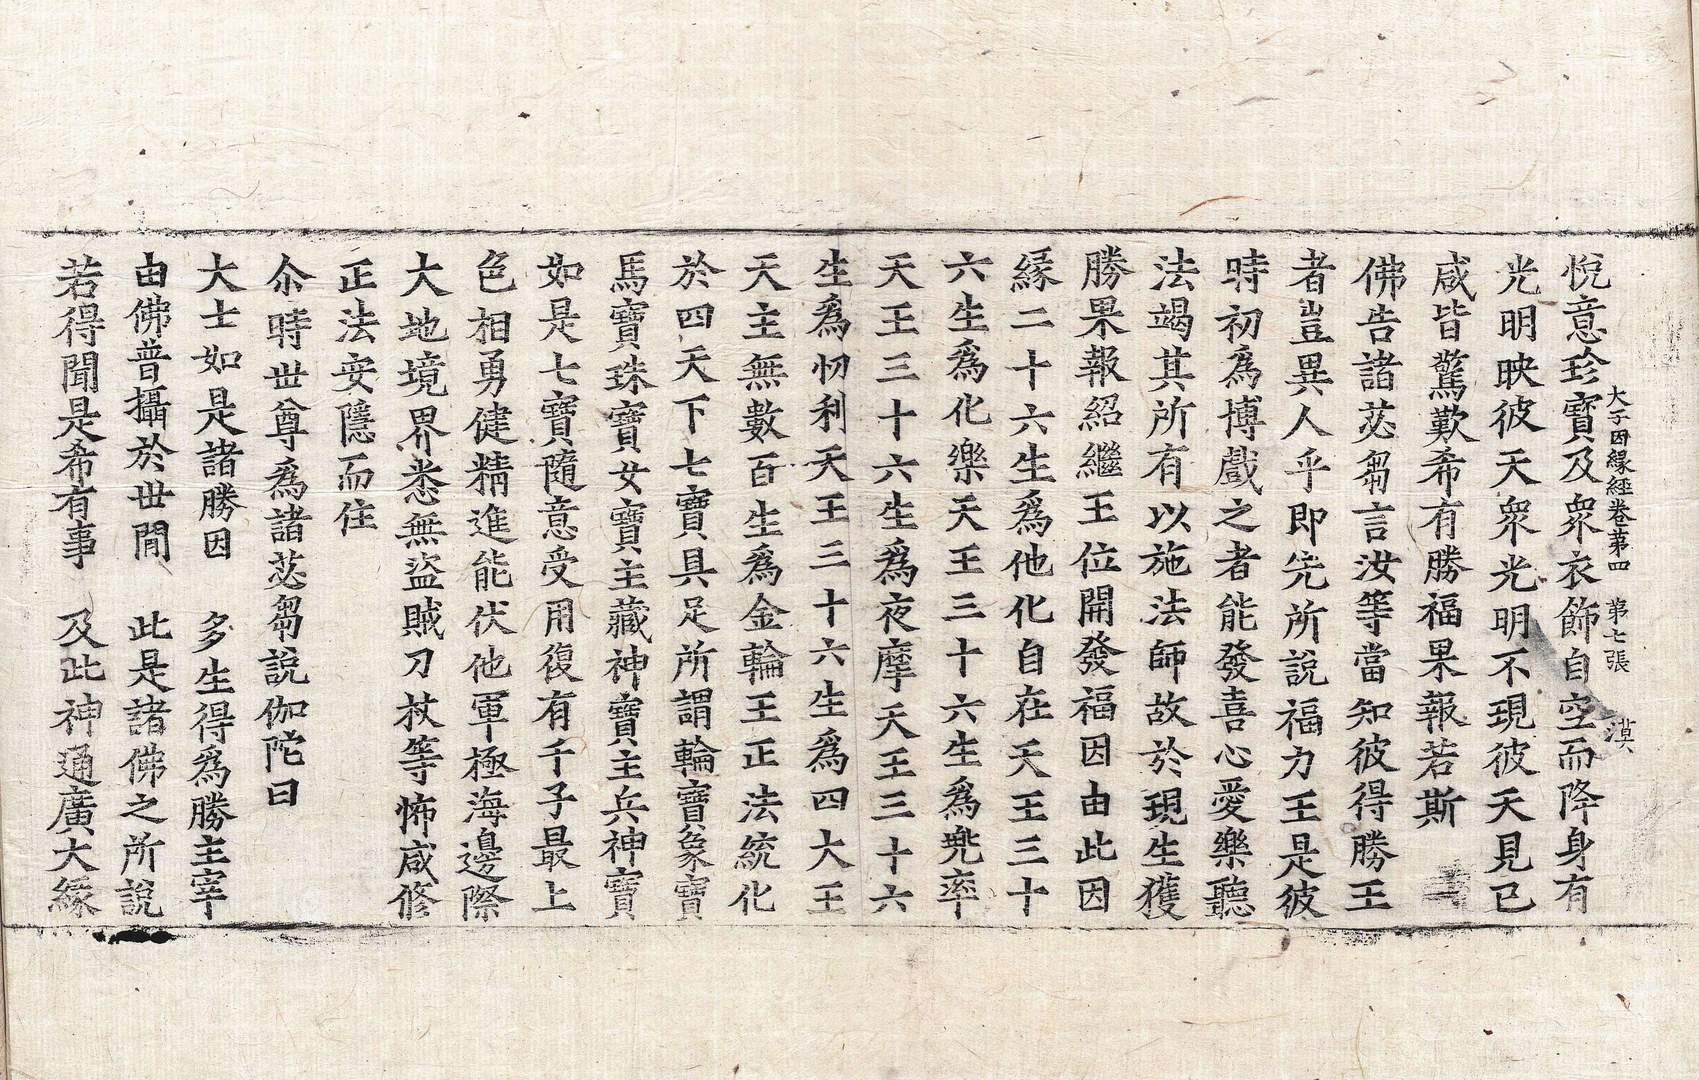 大子因緣經卷苐四　第七張　漠
悅意珍寶及衆衣飾自空而降身有
光明映彼天衆光明不現彼天見已
咸皆驚歎希有勝福果報若斯
佛告諸苾芻言汝等當知彼得勝王
者豈異人乎即先所說福力王是彼
時初爲博戲之者能發喜心愛樂聽
法竭其所有以施法師故於現生獲
勝果報紹繼王位開發福因由此因
緣二十六生爲他化自在天王三十
六生爲化樂天王三十六生爲兜率
天王三十六生爲夜摩天王三十六
生爲忉利天王三十六生爲四大王
天主無數百生爲金輪王正法統化
於四天下七寶具足所謂輪寶象寶
馬寶珠寶女寶主藏神寶主兵神寶
如是七寶隨意受用復有千子最上
色相勇健精進能伏他軍極海邊際
大地境界悉無盜賊刀杖等怖咸修
正法安隱而住
尒時世尊爲諸苾芻說伽陀曰
大士如是諸勝因　多生得爲勝主宰
由佛普攝於世間　此是諸佛之所說
若得聞是希有事　及此神通廣大緣